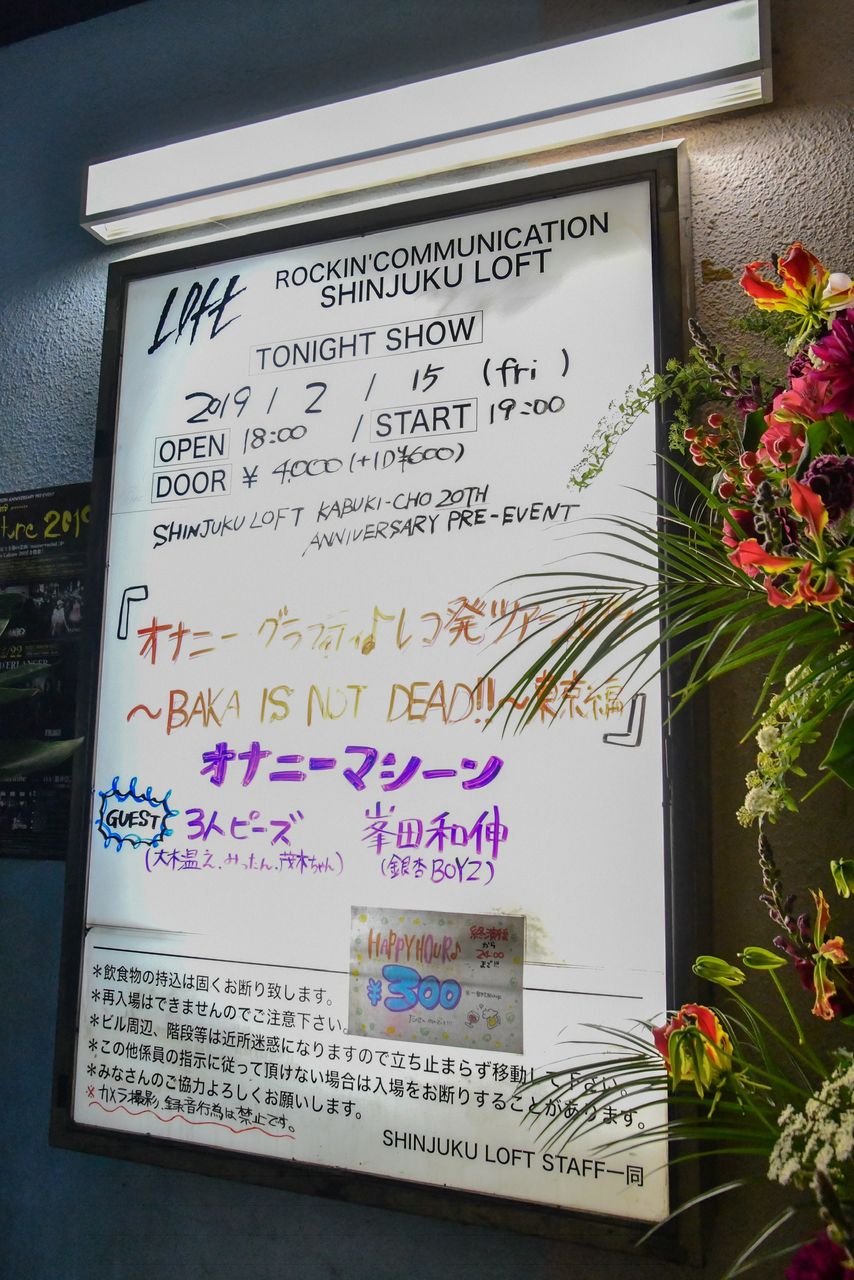 LOFT
ROCKIN'COMMUNICATION
SHINJUKU LOFT
TONIGHT SHOW
2019 / 2 / 15 (fri)
OPEN 18:00 / START 19:00
DOOR ¥ 4.000 (+1D¥600)
SHINJUKU LOFT KABUKI-CHO 20TH
ANNIVERSARY PRE-EVENT
『オナニーグラフィティ♪レコ発ツアー
〜BAKA IS NOT DEAD!!〜東京編』
オナニーマシーン
GUEST 3人ピーズ 峯田和伸
(大木温え、みったん、茂木ちゃん) (銀杏BOYZ)
HAPPY HOUR♪
終演後
から
24:00
まで!!
¥300
*飲食物の持込は固くお断り致します。
*再入場はできませんのでご注意下さい。
*ビル周辺、階段等は近所迷惑になりますので立ち止まらず移動して下さい。
*この他係員の指示に従って頂けない場合は入場をお断りすることがあります。
*みなさんのご協力よろしくお願いします。
※カメラ撮影、録音行為は禁止です。
SHINJUKU LOFT STAFF一同